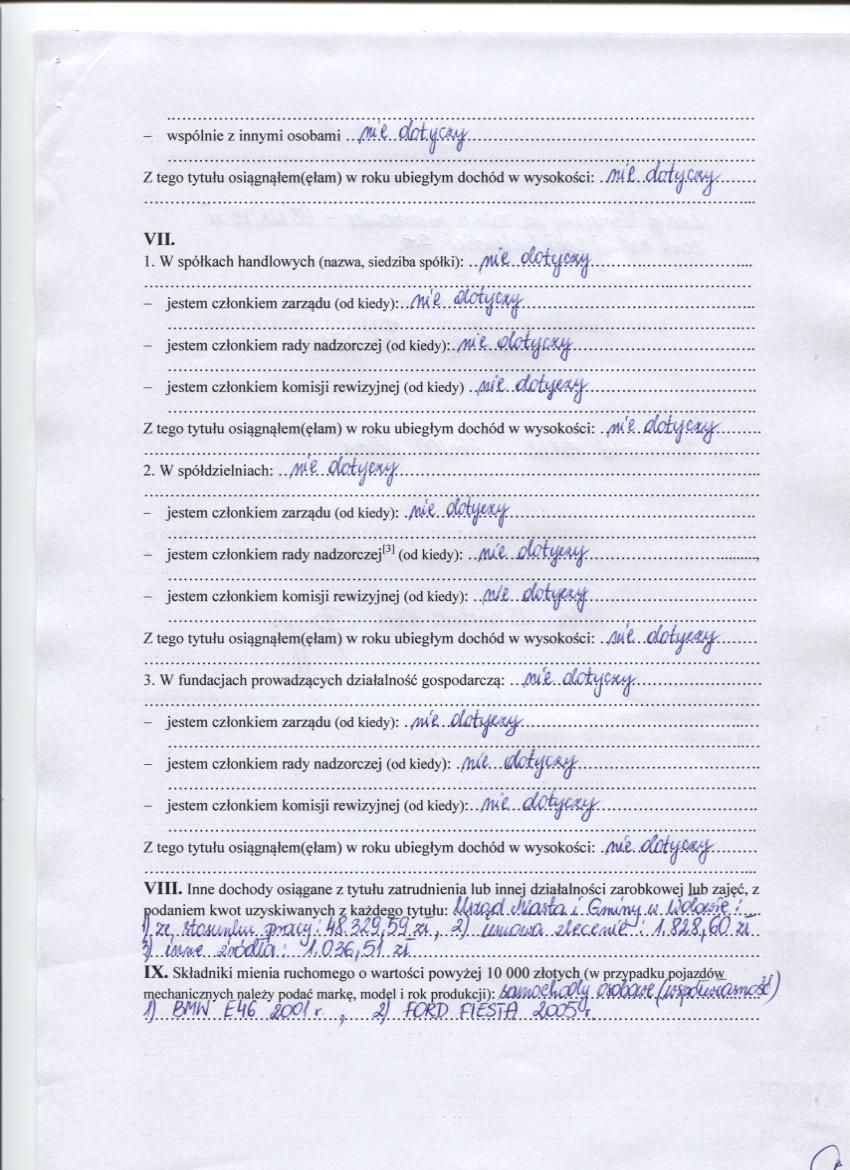 – wspólnie z innymi osobami nie dotyczy
Z tego tytułu osiągnąłem(ęłam) w roku ubiegłym dochód w wysokości: nie dotyczy
VII.
1. W spółkach handlowych (nazwa, siedziba spółki): nie dotyczy
– jestem członkiem zarządu (od kiedy): nie dotyczy
– jestem członkiem rady nadzorczej (od kiedy): nie dotyczy
– jestem członkiem komisji rewizyjnej (od kiedy) nie dotyczy
Z tego tytułu osiągnąłem(ęłam) w roku ubiegłym dochód w wysokości: nie dotyczy
2. W spółdzielniach: nie dotyczy
– jestem członkiem zarządu (od kiedy): nie dotyczy
– jestem członkiem rady nadzorczej[3] (od kiedy): nie dotyczy
– jestem członkiem komisji rewizyjnej (od kiedy): nie dotyczy
Z tego tytułu osiągnąłem(ęłam) w roku ubiegłym dochód w wysokości: nie dotyczy
3. W fundacjach prowadzących działalność gospodarczą: nie dotyczy
– jestem członkiem zarządu (od kiedy): nie dotyczy
– jestem członkiem rady nadzorczej (od kiedy): nie dotyczy
– jestem członkiem komisji rewizyjnej (od kiedy): nie dotyczy
Z tego tytułu osiągnąłem(ęłam) w roku ubiegłym dochód w wysokości: nie dotyczy
VIII. Inne dochody osiągane z tytułu zatrudnienia lub innej działalności zarobkowej lub zajęć, z
podaniem kwot uzyskiwanych z każdego tytułu: Urząd Miasta i Gminy w Wołowie:
1) ze stosunku pracy: 48.329,59 zł, 2) umowa zlecenie: 1.828,60 zł
3) inne źródła: 1.036,51 zł
IX. Składniki mienia ruchomego o wartości powyżej 10 000 złotych (w przypadku pojazdów
mechanicznych należy podać markę, model i rok produkcji): samochody osobowe (współwłasność)
1) BMW E46 2001 r., 2) FORD FIESTA 2005 r.